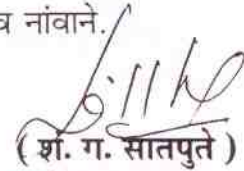 व नांवाने.
( शं. ग. सातपुते )